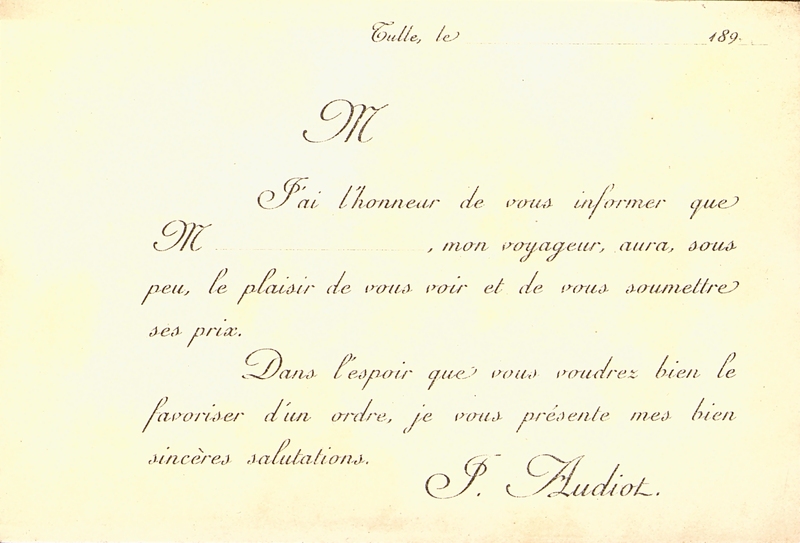 Tulle, le 189
M
J'ai l'honneur de vous informer que
M , mon voyageur, aura, sous
peu, le plaisir de vous voir et de vous soumettre
ses prix.
Dans l'espoir que vous voudrez bien le
favoriser d'un ordre, je vous présente mes bien
sincères salutations.
J. Audiot.